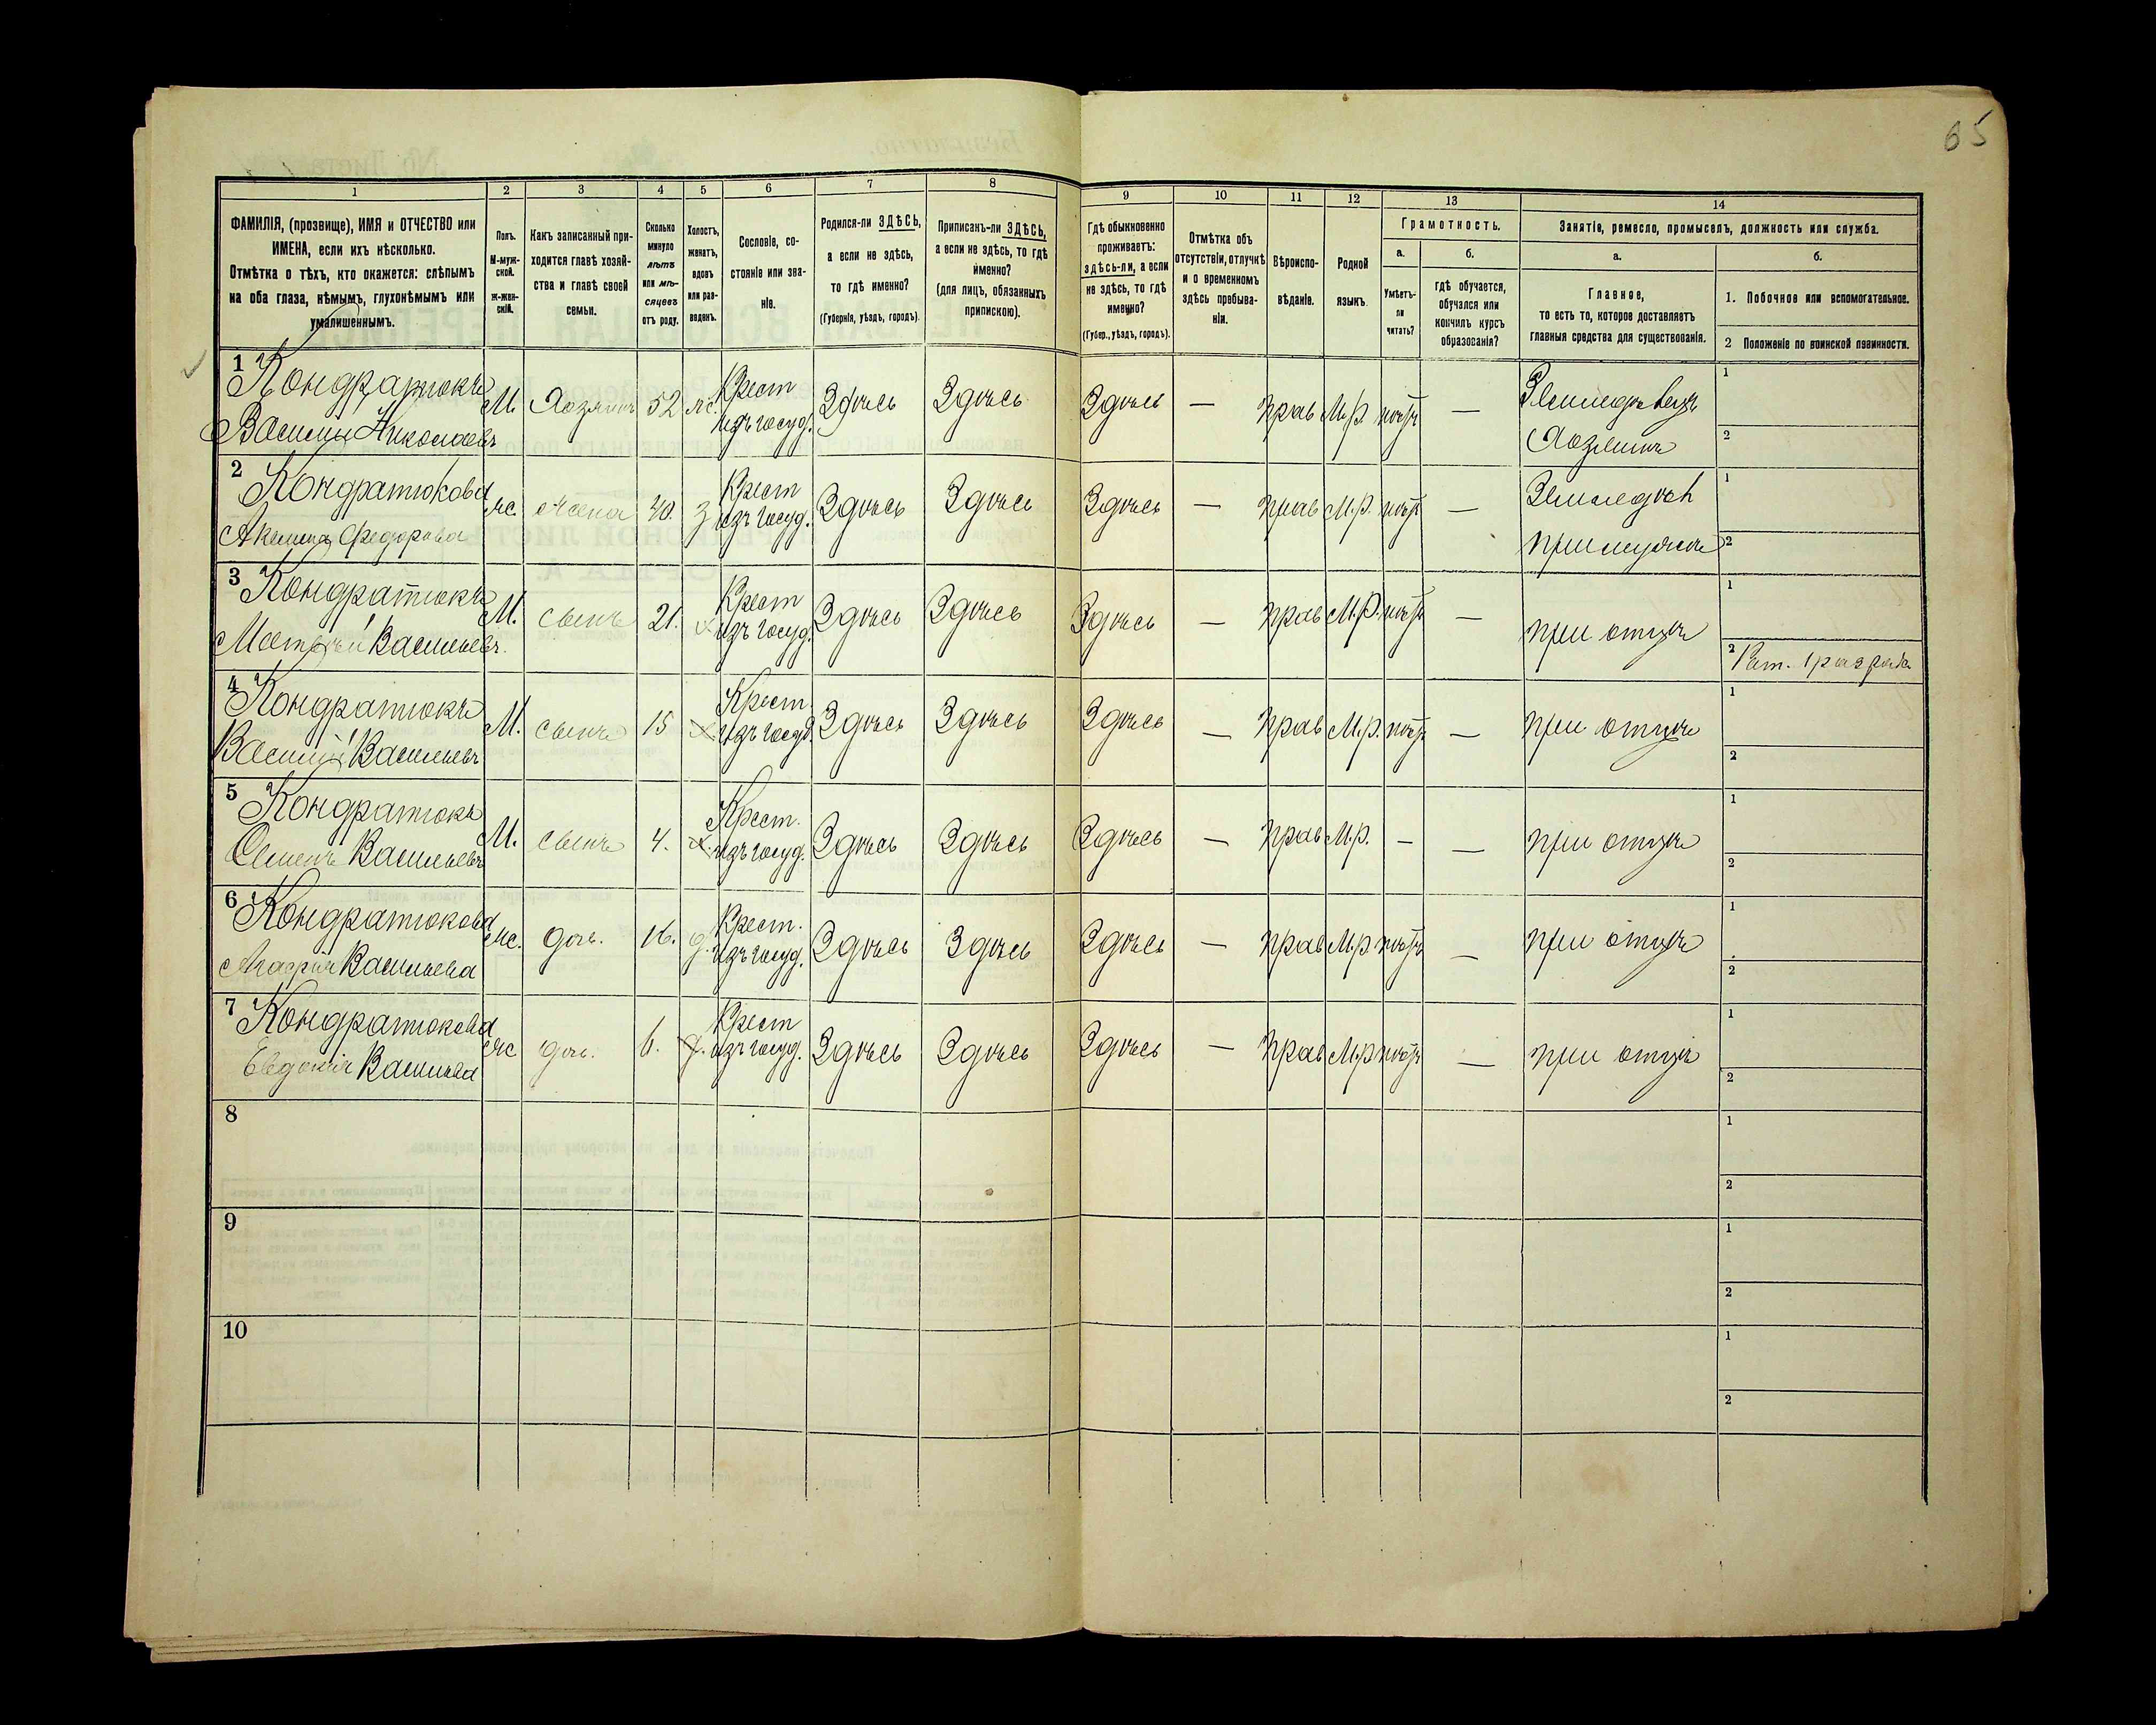 65
1 2 3 4 5 6 7 8 9 10 11 12 13 14
ФАМИЛІЯ, (прозвище), ИМЯ и ОТЧЕСТВО или
ИМЕНА, если ихъ нѣсколько.
Отмѣтка о тѣхъ, кто окажется: слѣпымъ
на оба глаза, нѣмымъ, глухонѣмымъ или
умалишеннымъ.
Полъ.
М-муж-
ской.
ж-жен-
скій.
Какъ записанный при-
ходится главѣ хозяй-
ства и главѣ своей
семьи.
Сколько
минуло
лѣтъ
или мѣ-
сяцевъ
отъ роду.
Холостъ,
женатъ,
вдовъ
или раз-
веденъ.
Сословіе, со-
стояніе или зва-
ніе.
Родился-ли ЗДѢСЬ,
а если не здѣсь,
то гдѣ именно?
(Губернія, уѣздъ, городъ).
Приписанъ-ли ЗДѢСЬ,
а если не здѣсь, то гдѣ
именно?
(для лицъ, обязанныхъ
припискою).
Гдѣ обыкновенно
проживаетъ:
здѣсь-ли, а если
не здѣсь, то гдѣ
именно?
(Губер., уѣздъ, городъ).
Отмѣтка объ
отсутствіи, отлучкѣ
и о временномъ
здѣсь пребыва-
ніи.
Вѣроиспо-
вѣданіе.
Родной
языкъ.
Грамотность.
а.
Умѣетъ-
ли
читать?
б.
гдѣ обучается,
обучался или
кончилъ курсъ
образованія?
Занятіе, ремесло, промыселъ, должность или служба.
а.
Главное,
то есть то, которое доставляетъ
главныя средства для существованія.
б.
1. Побочное или вспомогательное.
2 Положеніе по воинской повинности.
1 Кондратюкъ
Василій Николаевъ
М. Хозяинъ 52 ж. Крест
изъ госуд. Здѣсь Здѣсь Здѣсь — прав М.р. нѣтъ — Земледѣлецъ
Хозяинъ
1
2
2 Кондратюкова
Акилина Федорова
ж. жена 40. з Крест
изъ госуд. Здѣсь Здѣсь Здѣсь — прав М.р. нѣтъ — Земледѣл
при мужѣ
1
2
3 Кондратюкъ
Матвѣй Васильевъ.
М. сынъ 21. х Крест
изъ госуд. Здѣсь Здѣсь Здѣсь — прав М.р. нѣтъ — при отцѣ
1
2 Рат. 1 разряда
4 Кондратюкъ
Василій Васильевъ
М. сынъ 15 х. Крест.
изъ госуд Здѣсь Здѣсь Здѣсь — прав М.р. нѣтъ — при отцѣ
1
2
5 Кондратюкъ
Семенъ Васильевъ
М. сынъ 4. х. Крест.
изъ госуд. Здѣсь Здѣсь Здѣсь — прав М.р. — — при отцѣ
1
2
6 Кондратюкова
Агафія Васильева
ж. дочь. 16. д. Крест.
изъ госуд. Здѣсь Здѣсь Здѣсь — прав М.р нѣтъ — при отцѣ
1
2
7 Кондратюкова
Евдокія Васильева
ж дочь. 6. д. Крест
изъ госуд. Здѣсь Здѣсь Здѣсь — прав М.р нѣтъ — при отцѣ
1
2
8
1
2
9
1
2
10
1
2